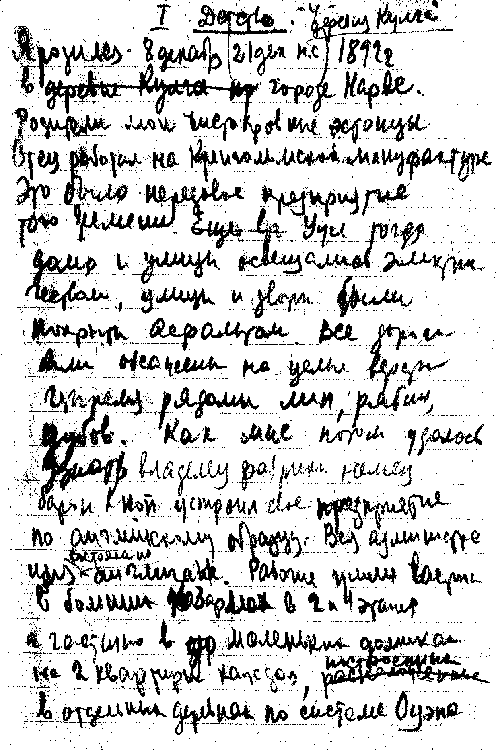 I Детство. "Деревня Кулга"
Я родилась 8 декабр (21 дек н.с) 1892 г
в деревне Кулга в городе Нарве.
Родители мои чистокровные эстонцы
Отец работал на Кренгольмской мануфактуре
Это было передовое предприятие
того времени Еще в тогда
дома и улицы освещались электри
чеством, улицы и дворы были
покрыты асфальтом. Все дороги
были обсажены на целые версты
рядами лип, рябин,
дубов. Как мне потом удалось
узнать владелец фабрики немец
барон Кноп устроил свое предприятие
по английскому образцу. Вся администра
ция состояла из англичан. Рабочие жили
в больших казармах в 2 и 4 этажа
а частью в маленьких домиках
на 2 квартиры каждая, построенные расположенные
в отдельных деревнях по системе Оуэна